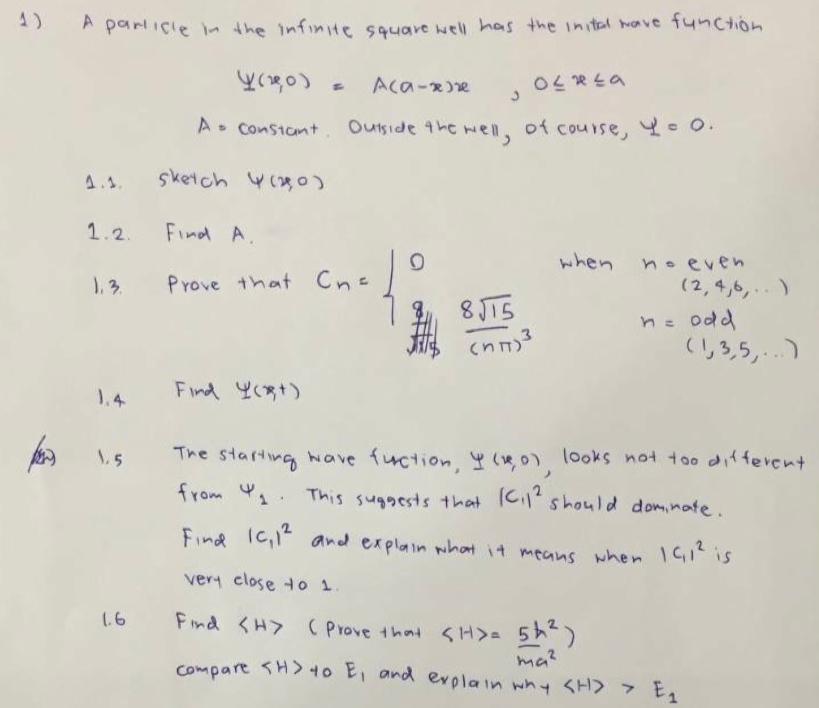 1) A particle in the infinite square well has the inital wave function
Ψ(x,0) = A(a-x)x , 0≤x≤a
A = constant. Outside the well, of course, Ψ = 0.
1.1. sketch Ψ(x,0)
1.2. Find A.
1.3. Prove that Cn = { 0 when n = even (2,4,6,...)
8√15/(nπ)³ n = odd (1,3,5,...)
1.4 Find Ψ(x,t)
1.5 The starting wave fuction, Ψ(x,0), looks not too different
from Ψ₁. This suggests that |C₁|² should dominate.
Find |C₁|² and explain what it means when |C₁|² is
very close to 1.
1.6 Find <H> (Prove that <H> = 5ħ²/ma²)
compare <H> to E₁ and explain why <H> > E₁